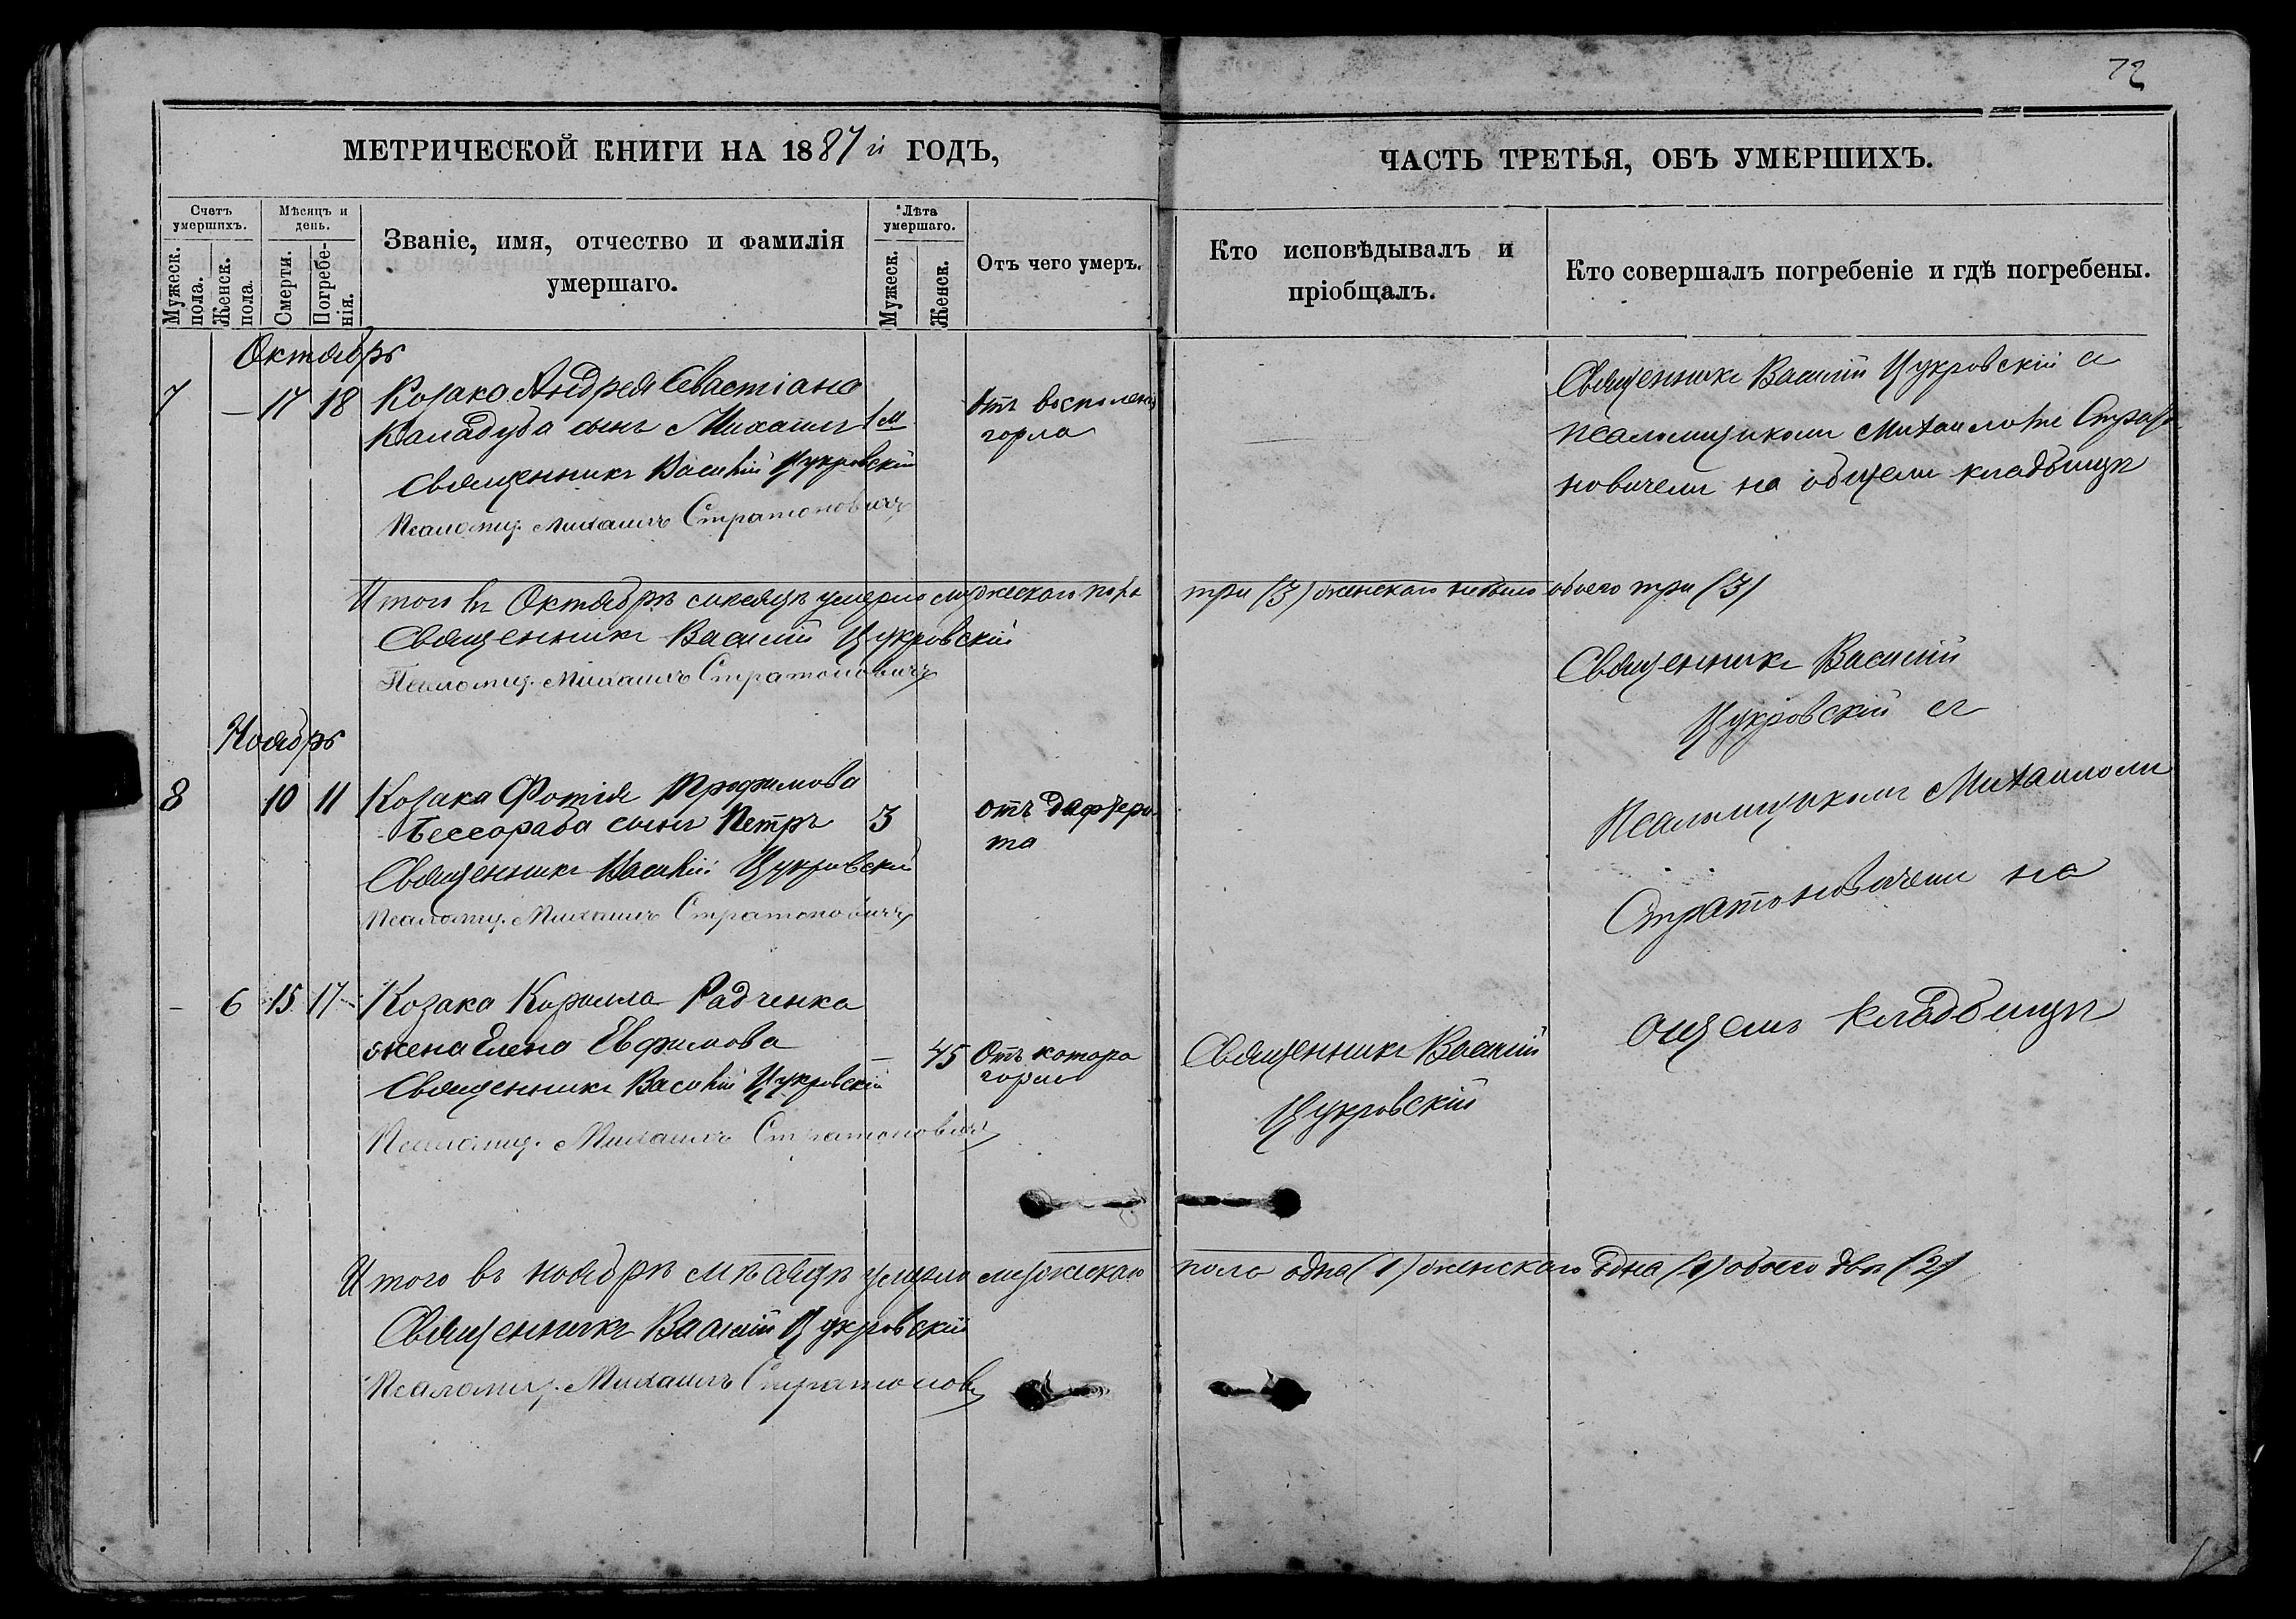 72
МЕТРИЧЕСКОЙ КНИГИ НА 1887й ГОДЪ,
ЧАСТЬ ТРЕТЬЯ, ОБЪ УМЕРШИХЪ.
Счетъ умершихъ.
Мужеск. пола.
Женск. пола.
Мѣсяцъ и день.
Смерти.
Погребе-нія.
Званіе, имя, отчество и фамилія
умершаго.
Лѣта умершаго.
Мужеск.
Женск.
Отъ чего умеръ.
Кто исповѣдывалъ и
пріобщалъ.
Кто совершалъ погребеніе и гдѣ погребены.
Октябрь
7 — 17 18 Козака Андрея Севастіана
Каладуба сынъ Михаилъ 1 м
Отъ воспаленія
горла
Священникъ Василій Цукровскій
Псаломщ. Михаилъ Стратоновичъ
Священникъ Василій Цукровскій съ
псаломщикомъ Михаиломъ Страто
новичемъ на общемъ кладбищѣ
Итого въ Октябрѣ мѣсяцѣ умерло мужескаго пола три (3) женскаго небыло обоего три (3)
Священникъ Василій Цукровскій
Псаломщ. Михаилъ Стратоновичъ
Ноябрь
8 10 11 Козака Фотія Трофимова
Бессараба сынъ Петръ 3
отъ дафтери-
та
Священникъ Василій Цукровскій
Псаломщ. Михаилъ Стратоновичъ
Священникъ Василій
Цукровскій съ
Псаломщикомъ Михаиломъ
Стратоновичемъ на
ощемъ кладбищѣ
— 6 15 17 Козака Кирилла Радченка
жена Елена Евфимова — 45
Отъ катара
горла
Священникъ Василій Цукровскій
Псаломщ. Михаилъ Стратоновичъ
Священникъ Василій
Цукровскій
Итого въ ноябрѣ мѣсяцѣ умерло мужескаго пола одна (1) женскаго одна (1) обоего два (2)
Священникъ Василій Цукровскій
Псаломщ. Михаилъ Стратонов